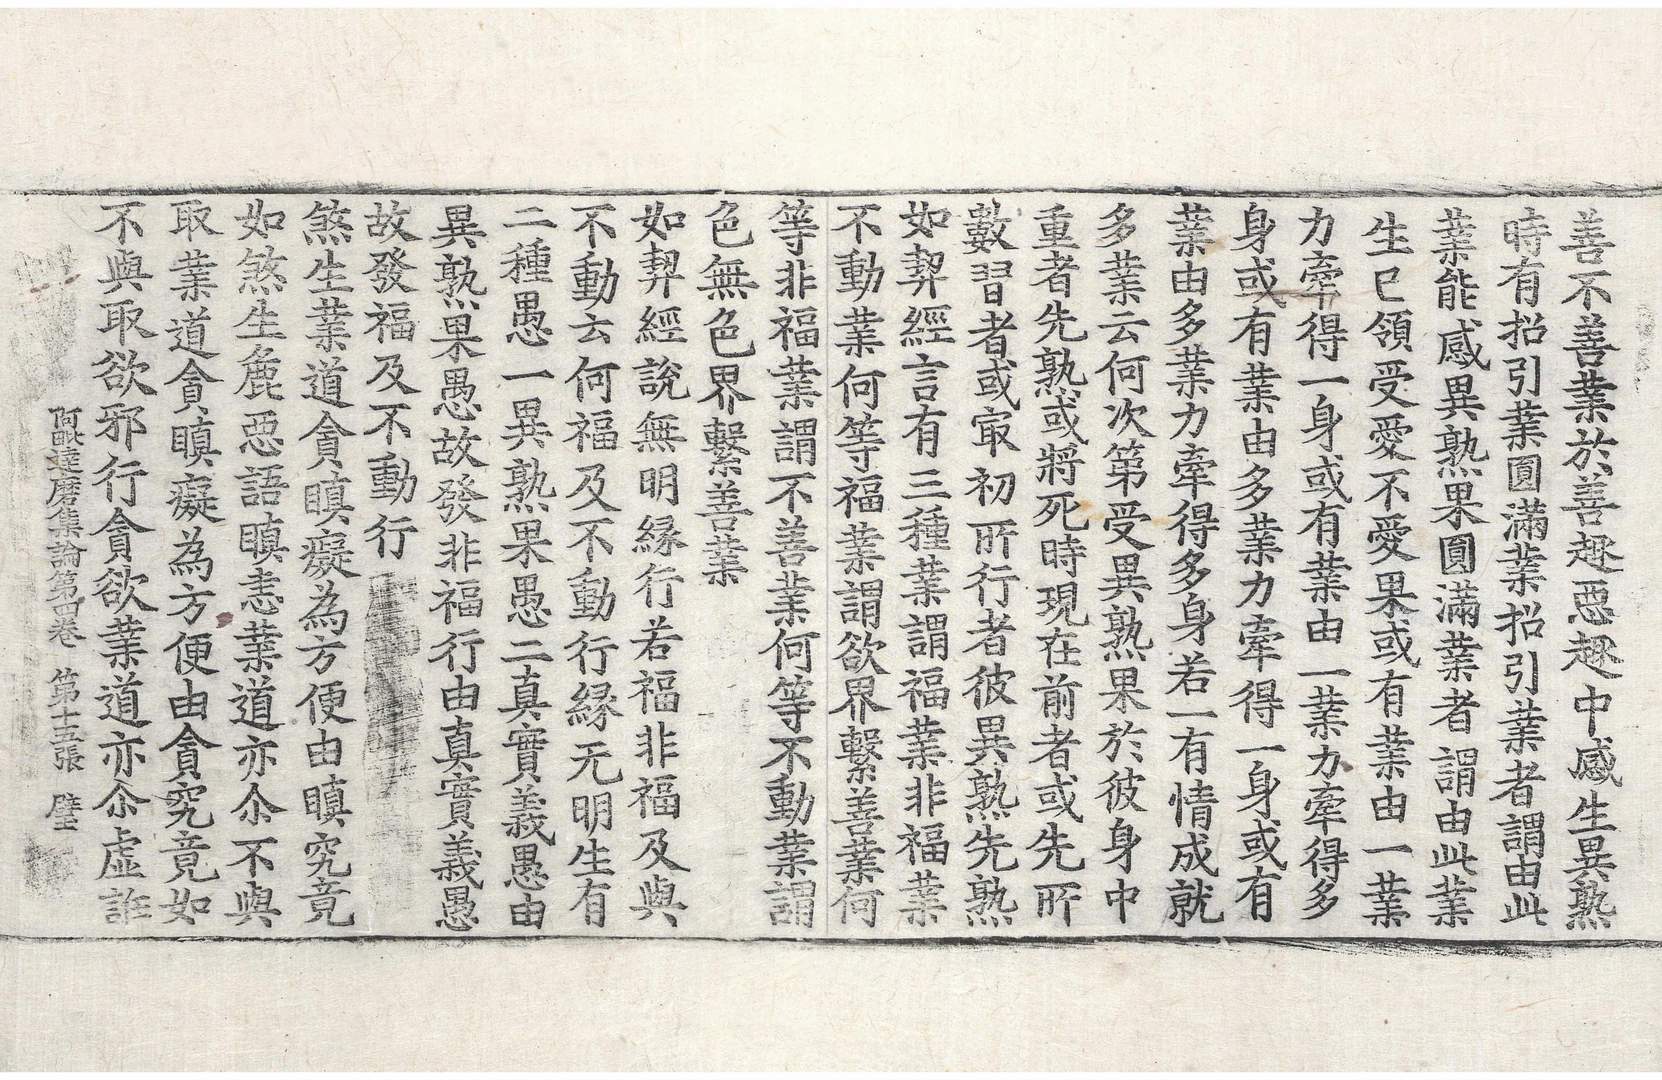 善不善業於善趣惡趣中感生異熟
時有招引業圓滿業招引業者謂由此
業能感異熟果圓滿業者謂由此業
生已領受愛不愛果或有業由一業
力牽得一身或有業由一業力牽得多
身或有業由多業力牽得一身或有
業由多業力牽得多身若一有情成就
多業云何次第受異熟果於彼身中
重者先熟或將死時現在前者或先所
數習者或㝡初所行者彼異熟先熟
如契經言有三種業謂福業非福業
不動業何等福業謂欲界繫善業何
等非福業謂不善業何等不動業謂
色無色界繫善業
如契經說無明緣行若福非福及與
不動云何福及不動行緣无明生有
二種愚一異熟果愚二真實義愚由
異熟果愚故發非福行由真實義愚
故發福及不動行
煞生業道貪瞋癡為方便由瞋究竟
如煞生麁惡語瞋恚業道亦尒不與
取業道貪瞋癡為方便由貪究竟如
不與取欲邪行貪欲業道亦尒虛誑
阿毗達磨集論第四卷 第十五張 璧